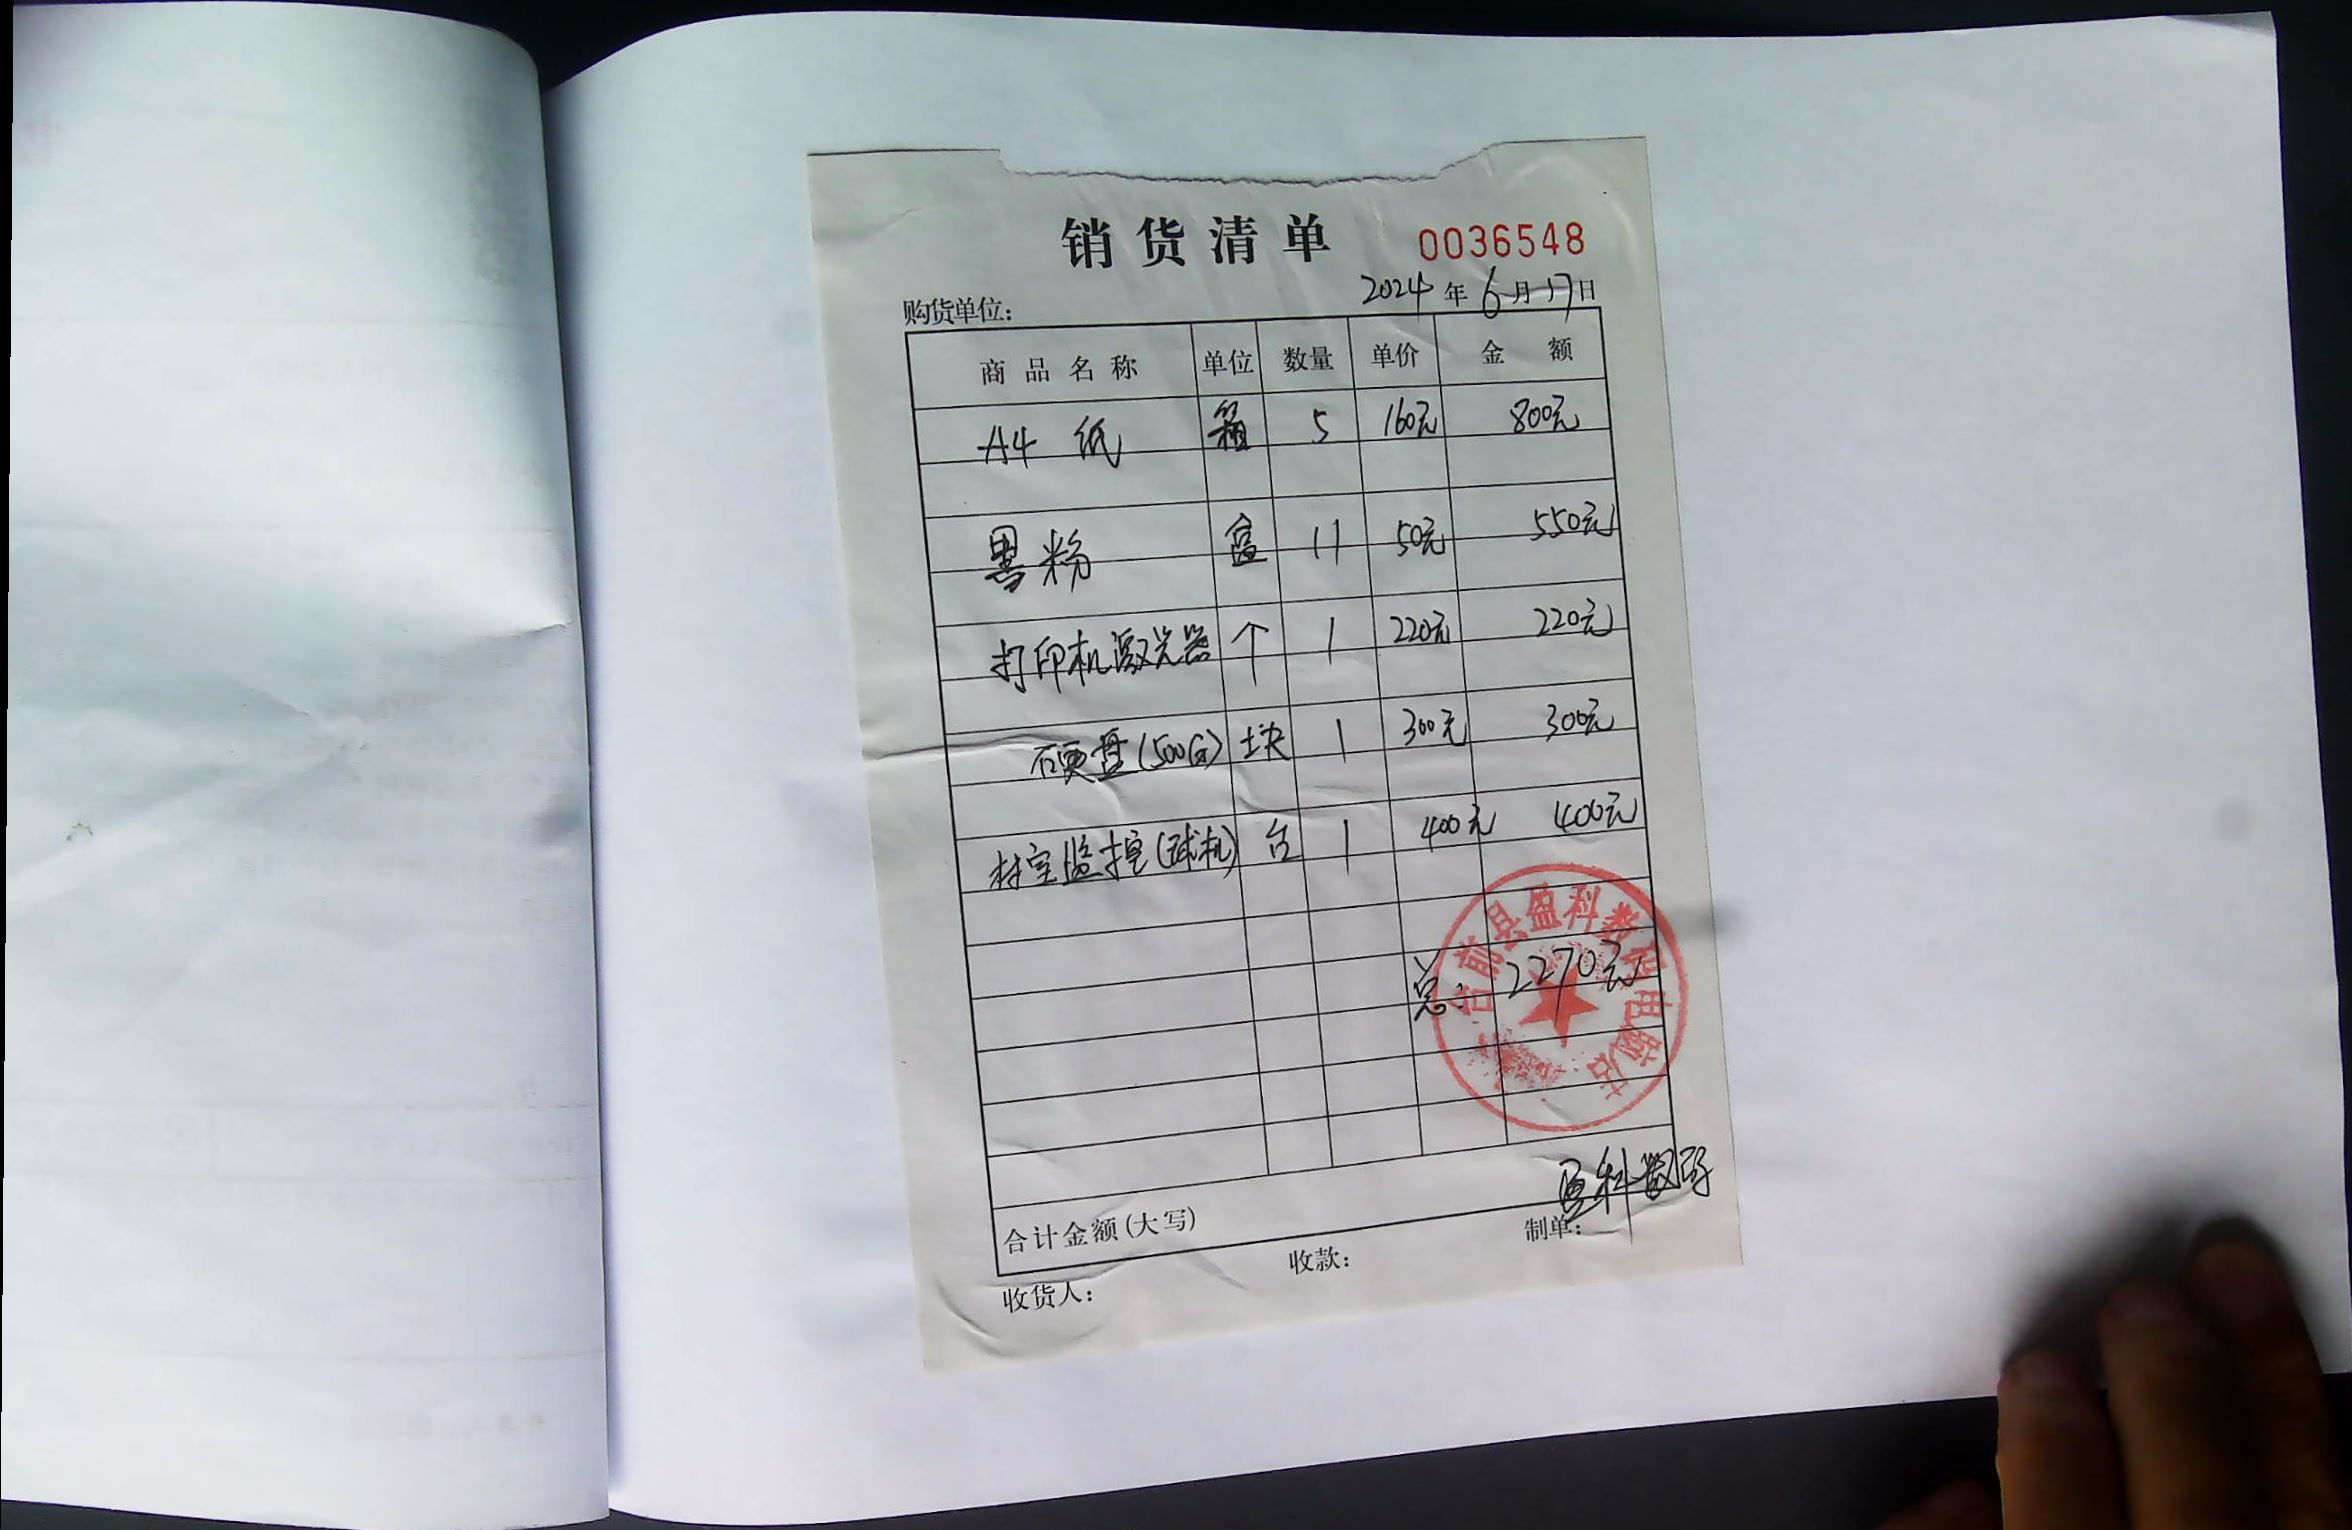 销货清单 0036548
购货单位： 2024年6月17日
商品名称 单位 数量 单价 金额
A4纸 箱 5 160元 800元
墨粉 盒 11 50元 550元
打印机激光器 个 1 220元 220元
硬盘(500G) 块 1 300元 300元
档室监控(球机) 台 1 400元 400元
总： 2270元
台前县盈科数码电脑店
盈科数码
合计金额(大写)
收货人： 收款： 制单：